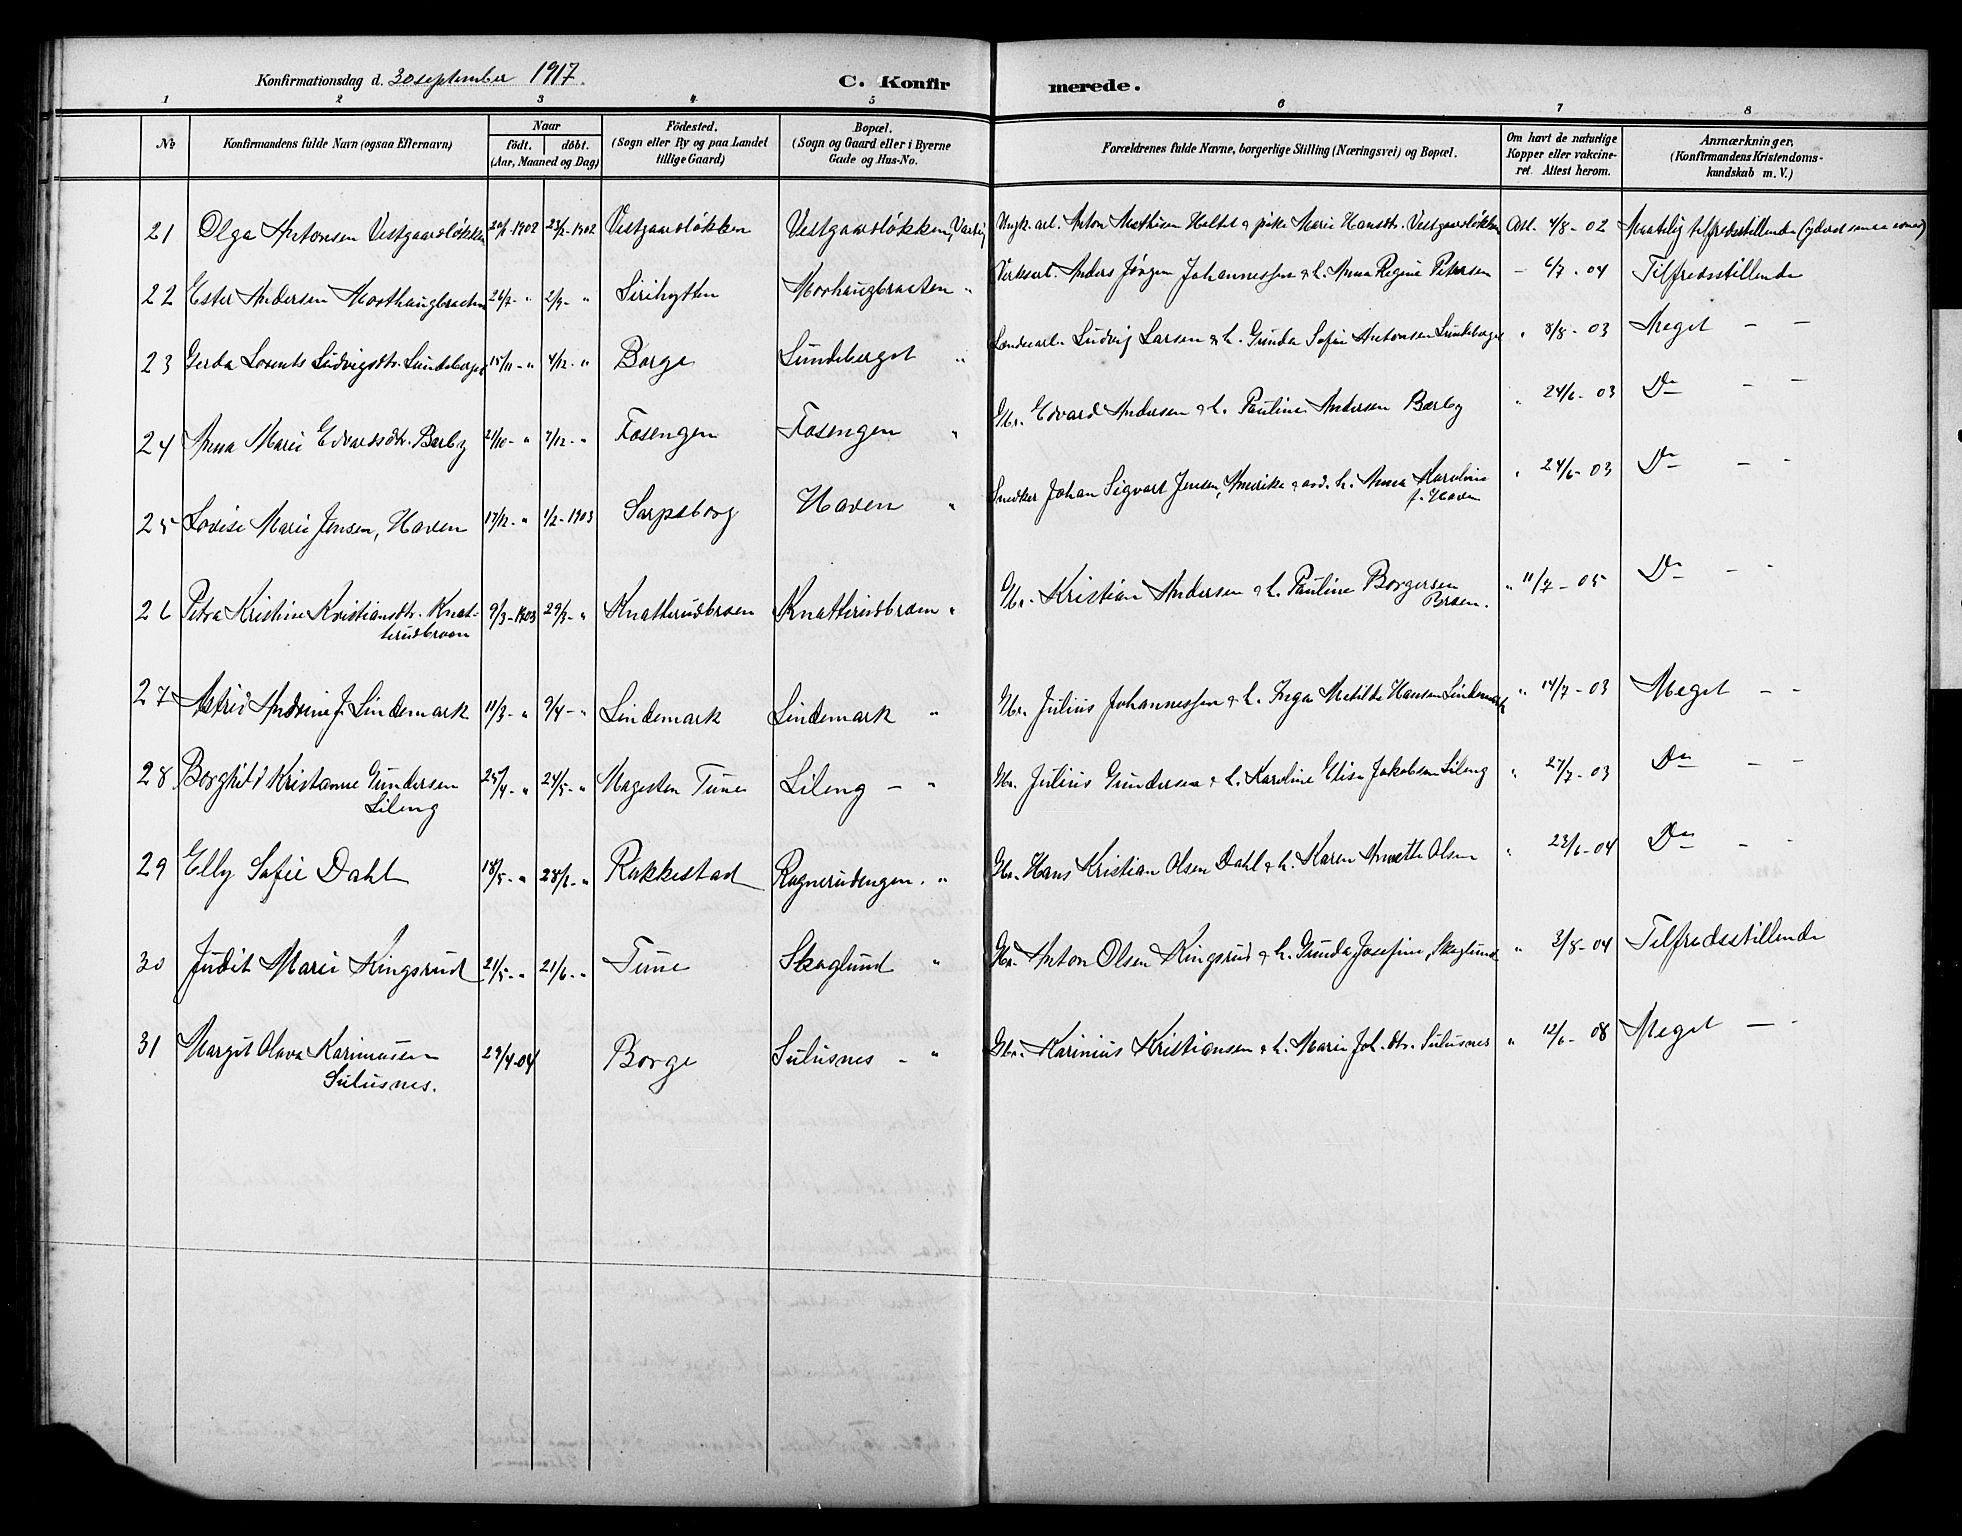 Konfirmationsdag d. 30 september 1917.
C. Konfirmerede.
1 2 3 4 5 6 7 8
No
Konfirmandens fulde Navn (ogsaa Efternavn)
Naar
født. døbt.
(Aar, Maaned og Dag)
Fødested.
(Sogn eller By og paa Landet
tillige Gaard)
Bopæl.
(Sogn og Gaard eller i Byerne
Gade og Hus-No.
Forældrenes fulde Navne, borgerlige Stilling (Næringsvei) og Bopæl.
Om havt de naturlige
Kopper eller vakcine-
ret. Attest herom.
Anmærkninger,
(Konfirmandens Kristendoms-
kundskab m. V.)
21 Olga Antonsen Vestgaardsløkken 1902 23/2-1902 Vestgaardsløkken Vestgaardsløkken, Varteig Anton Mathisen Heltel & pike Marie Hansdtr. Vestgaardsløkken Att. 4/8-02 Maatelig tilfredsstillende
22 Ester Andersen Moorhaugbraaten 26/7-" 2/9-" Sirihytten Moorhaugbraaten " Anders Jørgen Johannessen & h. Anna Regine Petersen - 6/7-04 Tilfredsstillende
23 Gerda Lorents Ludvigsdtr. Lundeberget 15/11-" 4/12-" Borge Lundeberget " Ludvig Larsen & h. Gunda Sofie Antonsen Lundeberget " 8/8-03 Meget - -
24 Anna Marie Edvardsdtr. Barby 21/10-" 7/12-" Fosengen Fosengen " Gbr. Edvard Andersen & h. Pauline Andersen Bærby " 24/6-03 Do - -
25 Lovise Marie Jensen, Haven 17/12-" 1/2-1903 Sarpsborg Haven " Snedker Johan Sigvart Jensen, Amerika & avd. h. Anna Karoline
f. Haven " 24/6-03 Do - -
26 Petra Kristine Kristiansdtr. Knat-
terudbraaen 9/3-1903 29/3-" Knatterudbraaen Knatterudbraaen " Gbr. Kristian Andersen & h. Pauline Borgersen
Braaen. " 11/7-05 Do - -
27 Astrid Andrine J. Lindemark 11/3-" 9/4-" Lindemark Lindemark " Gbr. Julius Johannessen & h. Inga Matilde Hansen Lindemark " 14/7-03 Meget - -
28 Borghild Kristianne Gundersen
Lileng 25/4-" 24/5-" Hagesten Tune Lileng - " Gbr. Julius Gundersen & h. Karoline Elise Jakobsen Lileng " 27/7-03 Do - -
29 Elly Sofie Dahl 18/5-" 28/2-" Rakkestad Ragnerudengen. " Gbr. Hans Kristian Olsen Dahl & h. Karen Anette Olsen " 22/6-04 Do - -
30 Judit Marie Kingsrud 21/5-" 21/6-" Tune Skoglund " Gbr. Anton Olsen Kingsrud & h. Gunda Josefine, Skoglund " 3/8-04 Tilfredsstillende
31 Margit Olava Karinussen
Sulusnes. 29/4-04 Borge Sulusnes - " Gbr. Karinius Kristiansen & h. Marie Joh.dtr. Sulusnes " 12/6-08 Meget - -